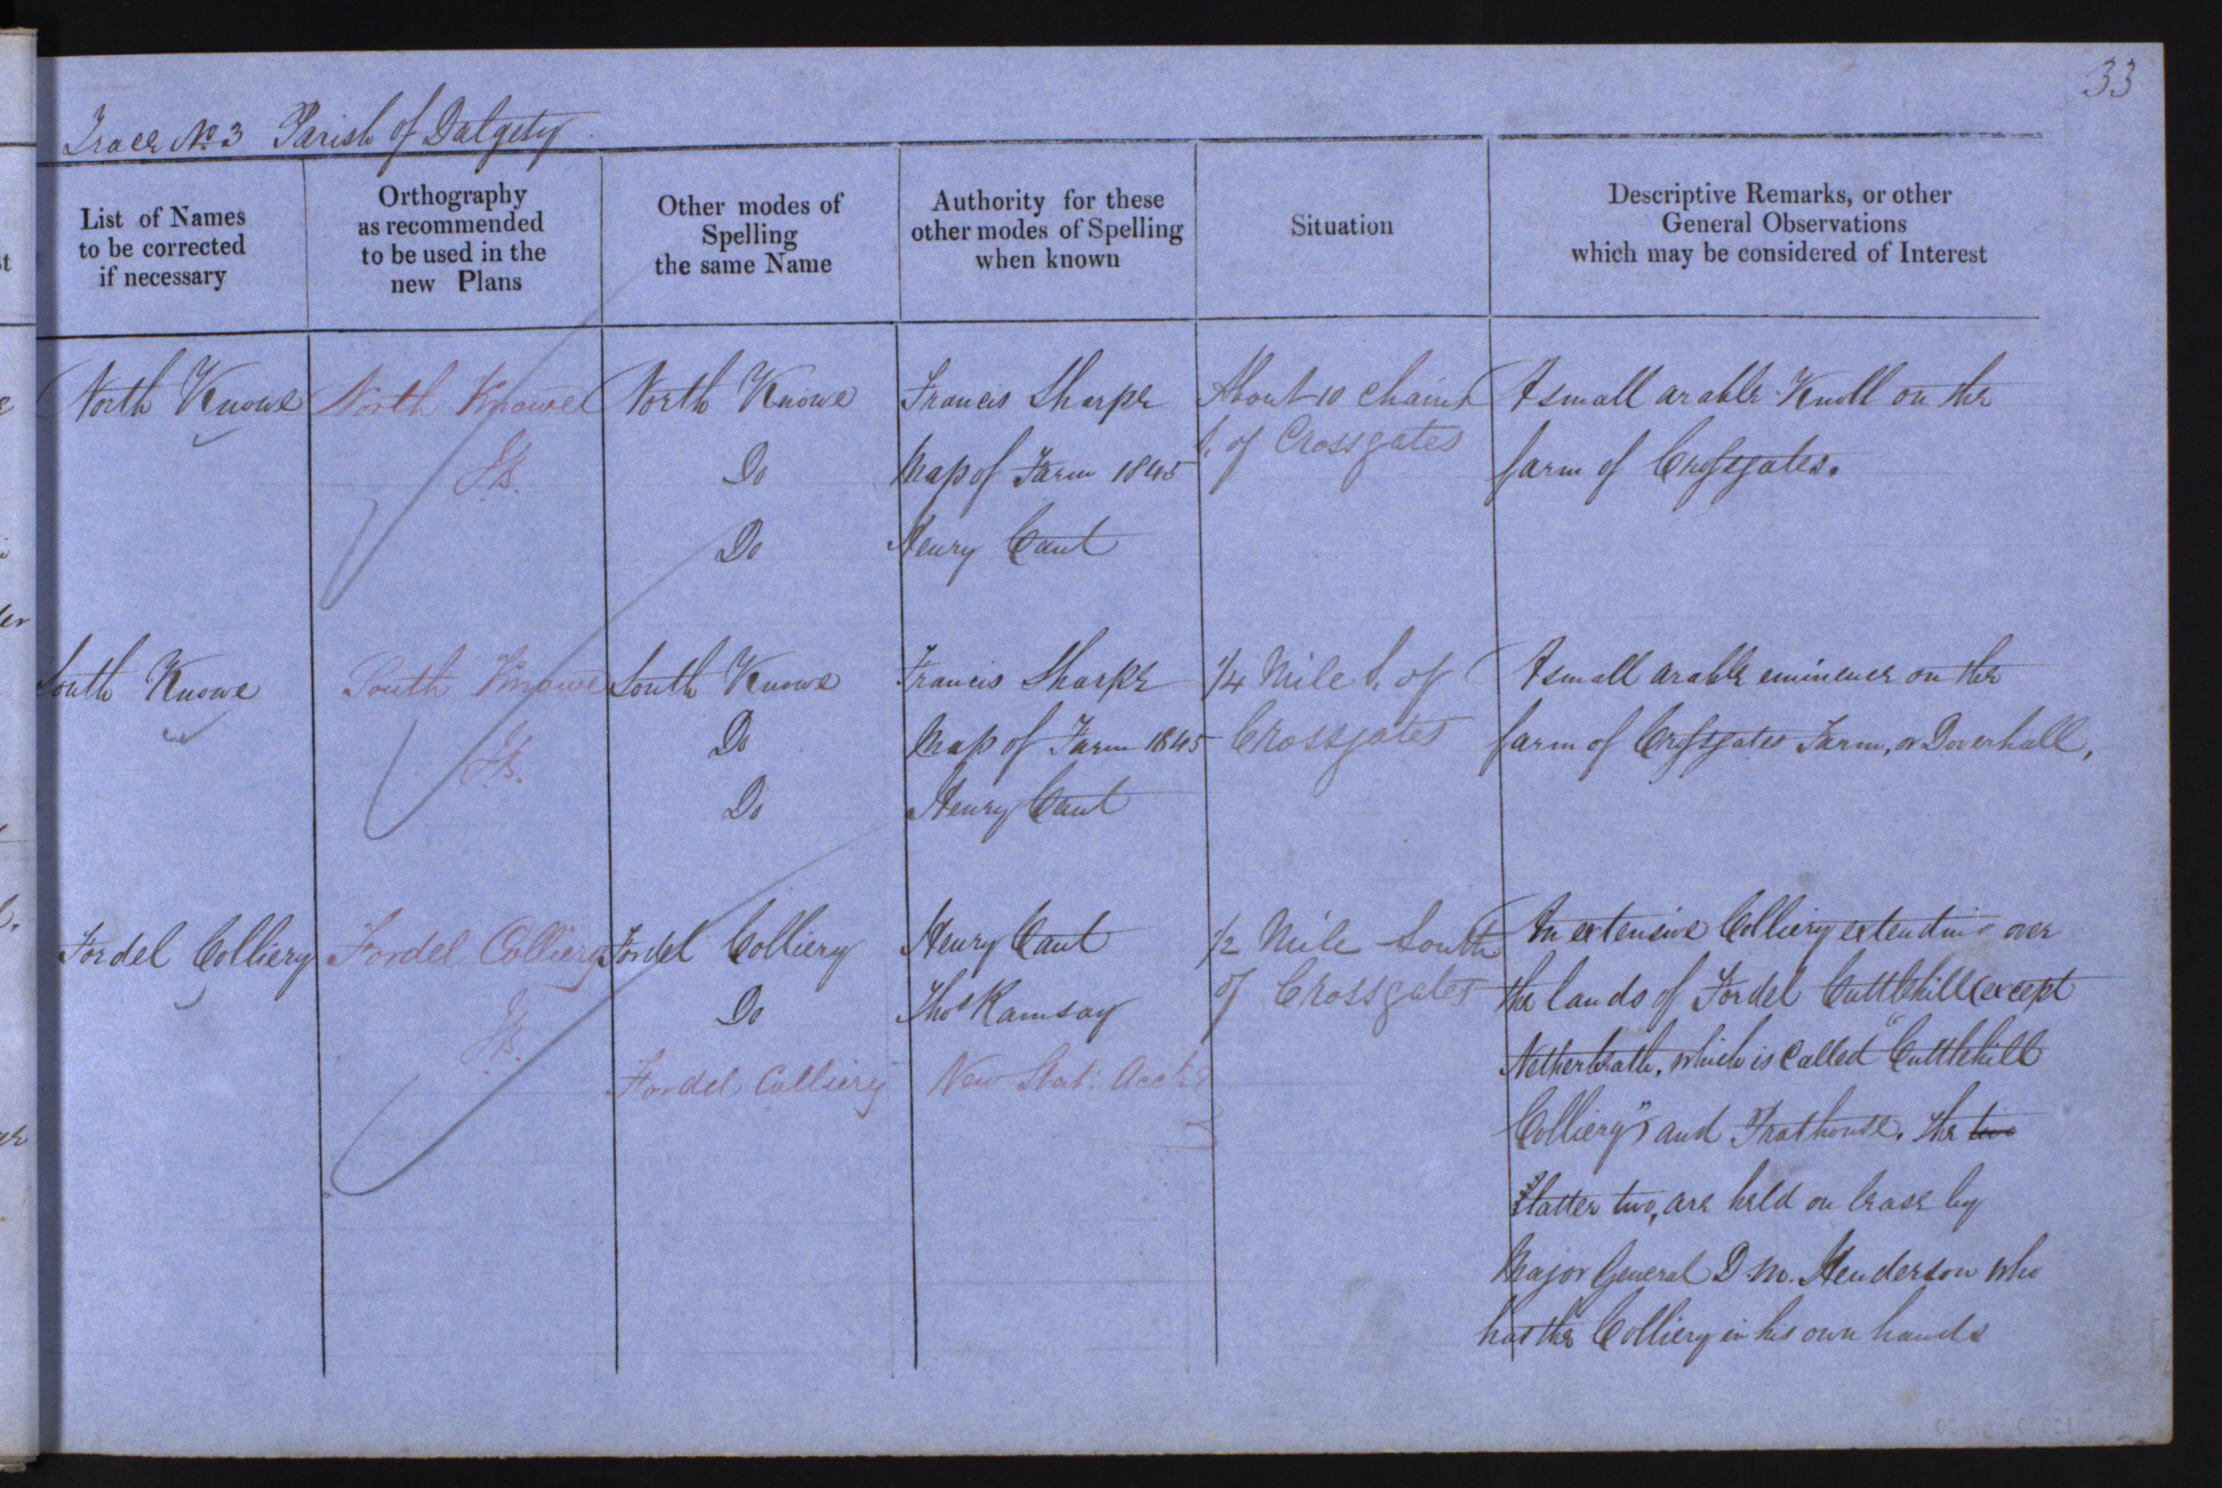 33
Trace No. 3 Parish of Dalgety
List of Names
to be corrected
if necessary
Orthography
as recommended
to be used in the
new Plans
Other modes of
Spelling
the same Name
Authority for these
other modes of Spelling
when known
Situation
Descriptive Remarks, or other
General Observations
which may be considered of Interest
North Knowe
North Knowe
North Knowe
Do
Do
Francis Sharpe
Map of Farm 1845
Henry Cant
About 10 chains
S. of Crossgates
A small arable Knoll on the
farm of Crossgates.
South Knowe
South Knowe
South Knowe
Do
Do
Francis Sharpe
Map of Farm 1845
Henry Cant
1/4 Mile S. of
Crossgates
A small arable eminence on the
farm of Crossgates Farm, or Doverhall,
Fordel Colliery
Fordel Colliery
Fordel Colliery
Do
Fordel Colliery
Henry Cant
Thos Ramsay
New Stat. Acct.
1/2 Mile South
of Crossgates
An extensive Colliery extending over
the lands of Fordel Cuttlehill (except
Netherbrath, which is Called "Cuttlehill
Colliery") and Prathouse. The two
latter two, are held on lease by
Major General D. M. Henderson who
has the Colliery in his own hands